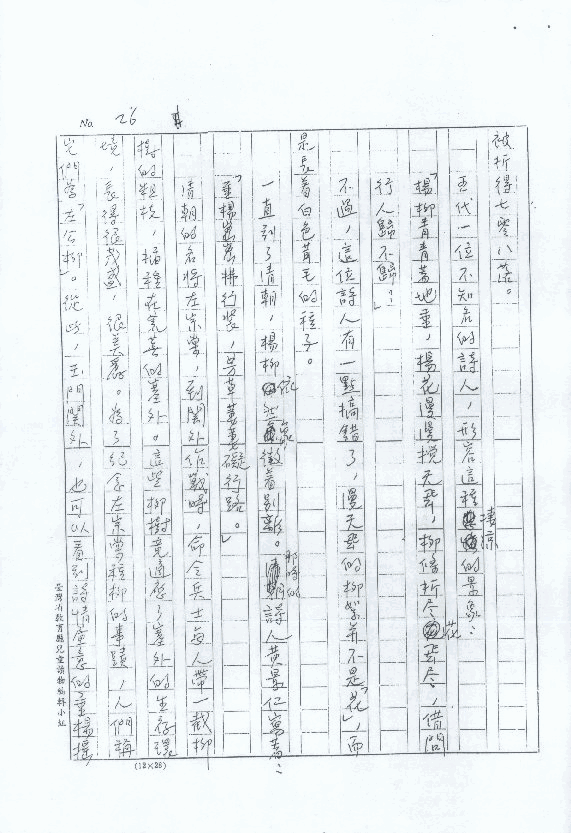 No. 26
被折得七零八落。
五代一位不知名的詩人，形容這種淒涼的景象：
「楊柳青青著地垂，楊花漫漫攪天飛，柳條折盡花飛盡，借問
行人歸不歸？」
不過，這位詩人有一點搞錯了，漫天飛的柳絮並不是「花」，而
是長着白色茸毛的種子。
一直到了清朝，楊柳依然象徵着別離。那時的詩人黃景仁寫着：
「垂楊拂行裝，芳草萋萋礙行路。」
清朝的名將左宗棠，到關外作戰時，命令兵士每人帶一截柳
樹的粗枝，插種在荒蕪的塞外。這些柳樹竟適應了塞外的生存環
境，長得很茂盛，很美麗。為了紀念左宗棠種柳的事蹟，人們稱
它們為「左公柳」。從此，玉門關外，也可以看到詩情畫意的垂楊搖
臺灣省教育廳兒童讀物編輯小組
(12×25)